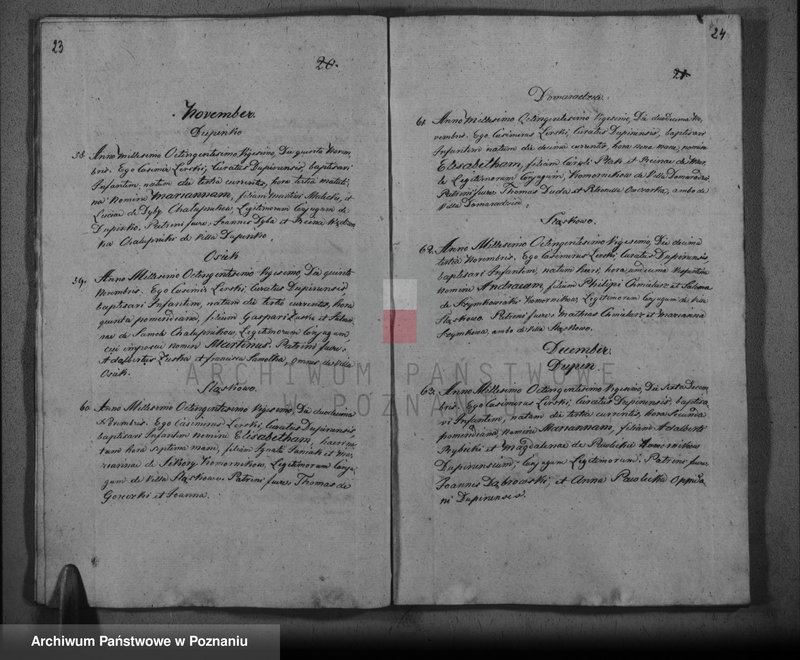 23
20.
November.
Dupinko
58. Anno Millesimo Octingentesimo Vigesimo, Die quinta Novem
bris. Ego Casimir Lerski, Curatus Dupinensis, baptisavi
Infantem, natum die tertia currentis, hora tertia matuti
na Nomine Mariannam, filiam
Lucia de Dyby Chalupnica, Legitimorum Conjugum de
Dupinko. Patrini fuere, Joannes Dyba et
Chalupnikr de villa Dupinko.
Osiek
59. Anno Millesimo Octingentesimo Vigesimo, Die quinta
Novembris. Ego Casimir Lerski Curatus Dupinensis
baptisavi Infantem, natum die tertia currentis, hora
quinta pomeridiana, filium Gaspari Luska et
de Samol Chalupnikow, Legitimorum Conjugum
cui imposui nomen Martinus. Patrini fuere,
Adalbertus Luska et francisca Samolka, omnes de Villa
Osiek.
Slaskowo.
60. Anno Millesimo Octingentesimo Vigesimo, Die duodecima
Novembris. Ego Casimirus Lerski, Curatus Dupinensis,
baptisavi Infantem Nomine Elisabetham,
hora septima mane, filiam Ignati et Ma
rianna de Komornikow, Legitimorum Conju
gum de Villa Slaskowo. Patrini fuere Thomas de
Goreczki et Joanna.
24
21.
Domaradzice.
61. Anno Millesimo Octingentesimo Vigesimo, Die duodecima No
vembris. Ego Casimirus Lerski, Curatus Dupinensis, baptisavi
Infantem natam die decima currentis, hora nona mane, nomine
Elisabetham, filiam
Legitimorum Conjugum, Komornikow de Villa Domaradzice.
Patrini fuere Thomas Duda et Petronella Owczarka, ambo de
Villa Domaradzice.
Slaskowo.
62. Anno Millesimo Octingentesimo Vigesimo, Die decima
tertia Novembris. Ego Casimirus Lerski, Curatus Dupinensis,
baptisavi Infantem, natum heri, hora undecima vespertina
nomine Andream, filium Philipi et
de Komornikow, Legitimorum Conjugum de Villa
Slaskowo. Patrini fuere Mathias et Marianna
ambo de Villa Slaskowo.
December.
Dupin.
63. Anno Millesimo Octingentesimo Vigesimo, Die Sexta Decem
bris. Ego Casimirus Lerski, Curatus Dupinensis, baptisa
vi Infantem, natam die tertia currentis, hora Secunda
pomeridiana, Nomine Mariannam, filiam Adalberti
Rybicki et Magdalenae de Pawlicka Komornikow
Dupinensium, Conjugum Legitimorum. Patrini fuere
Joannes Dąbrowski, et Anna Pawlicka Oppida
ni Dupinenses.
ARCHIWUM PAŃSTWOWE
W POZNANIU
Archiwum Państwowe w Poznaniu